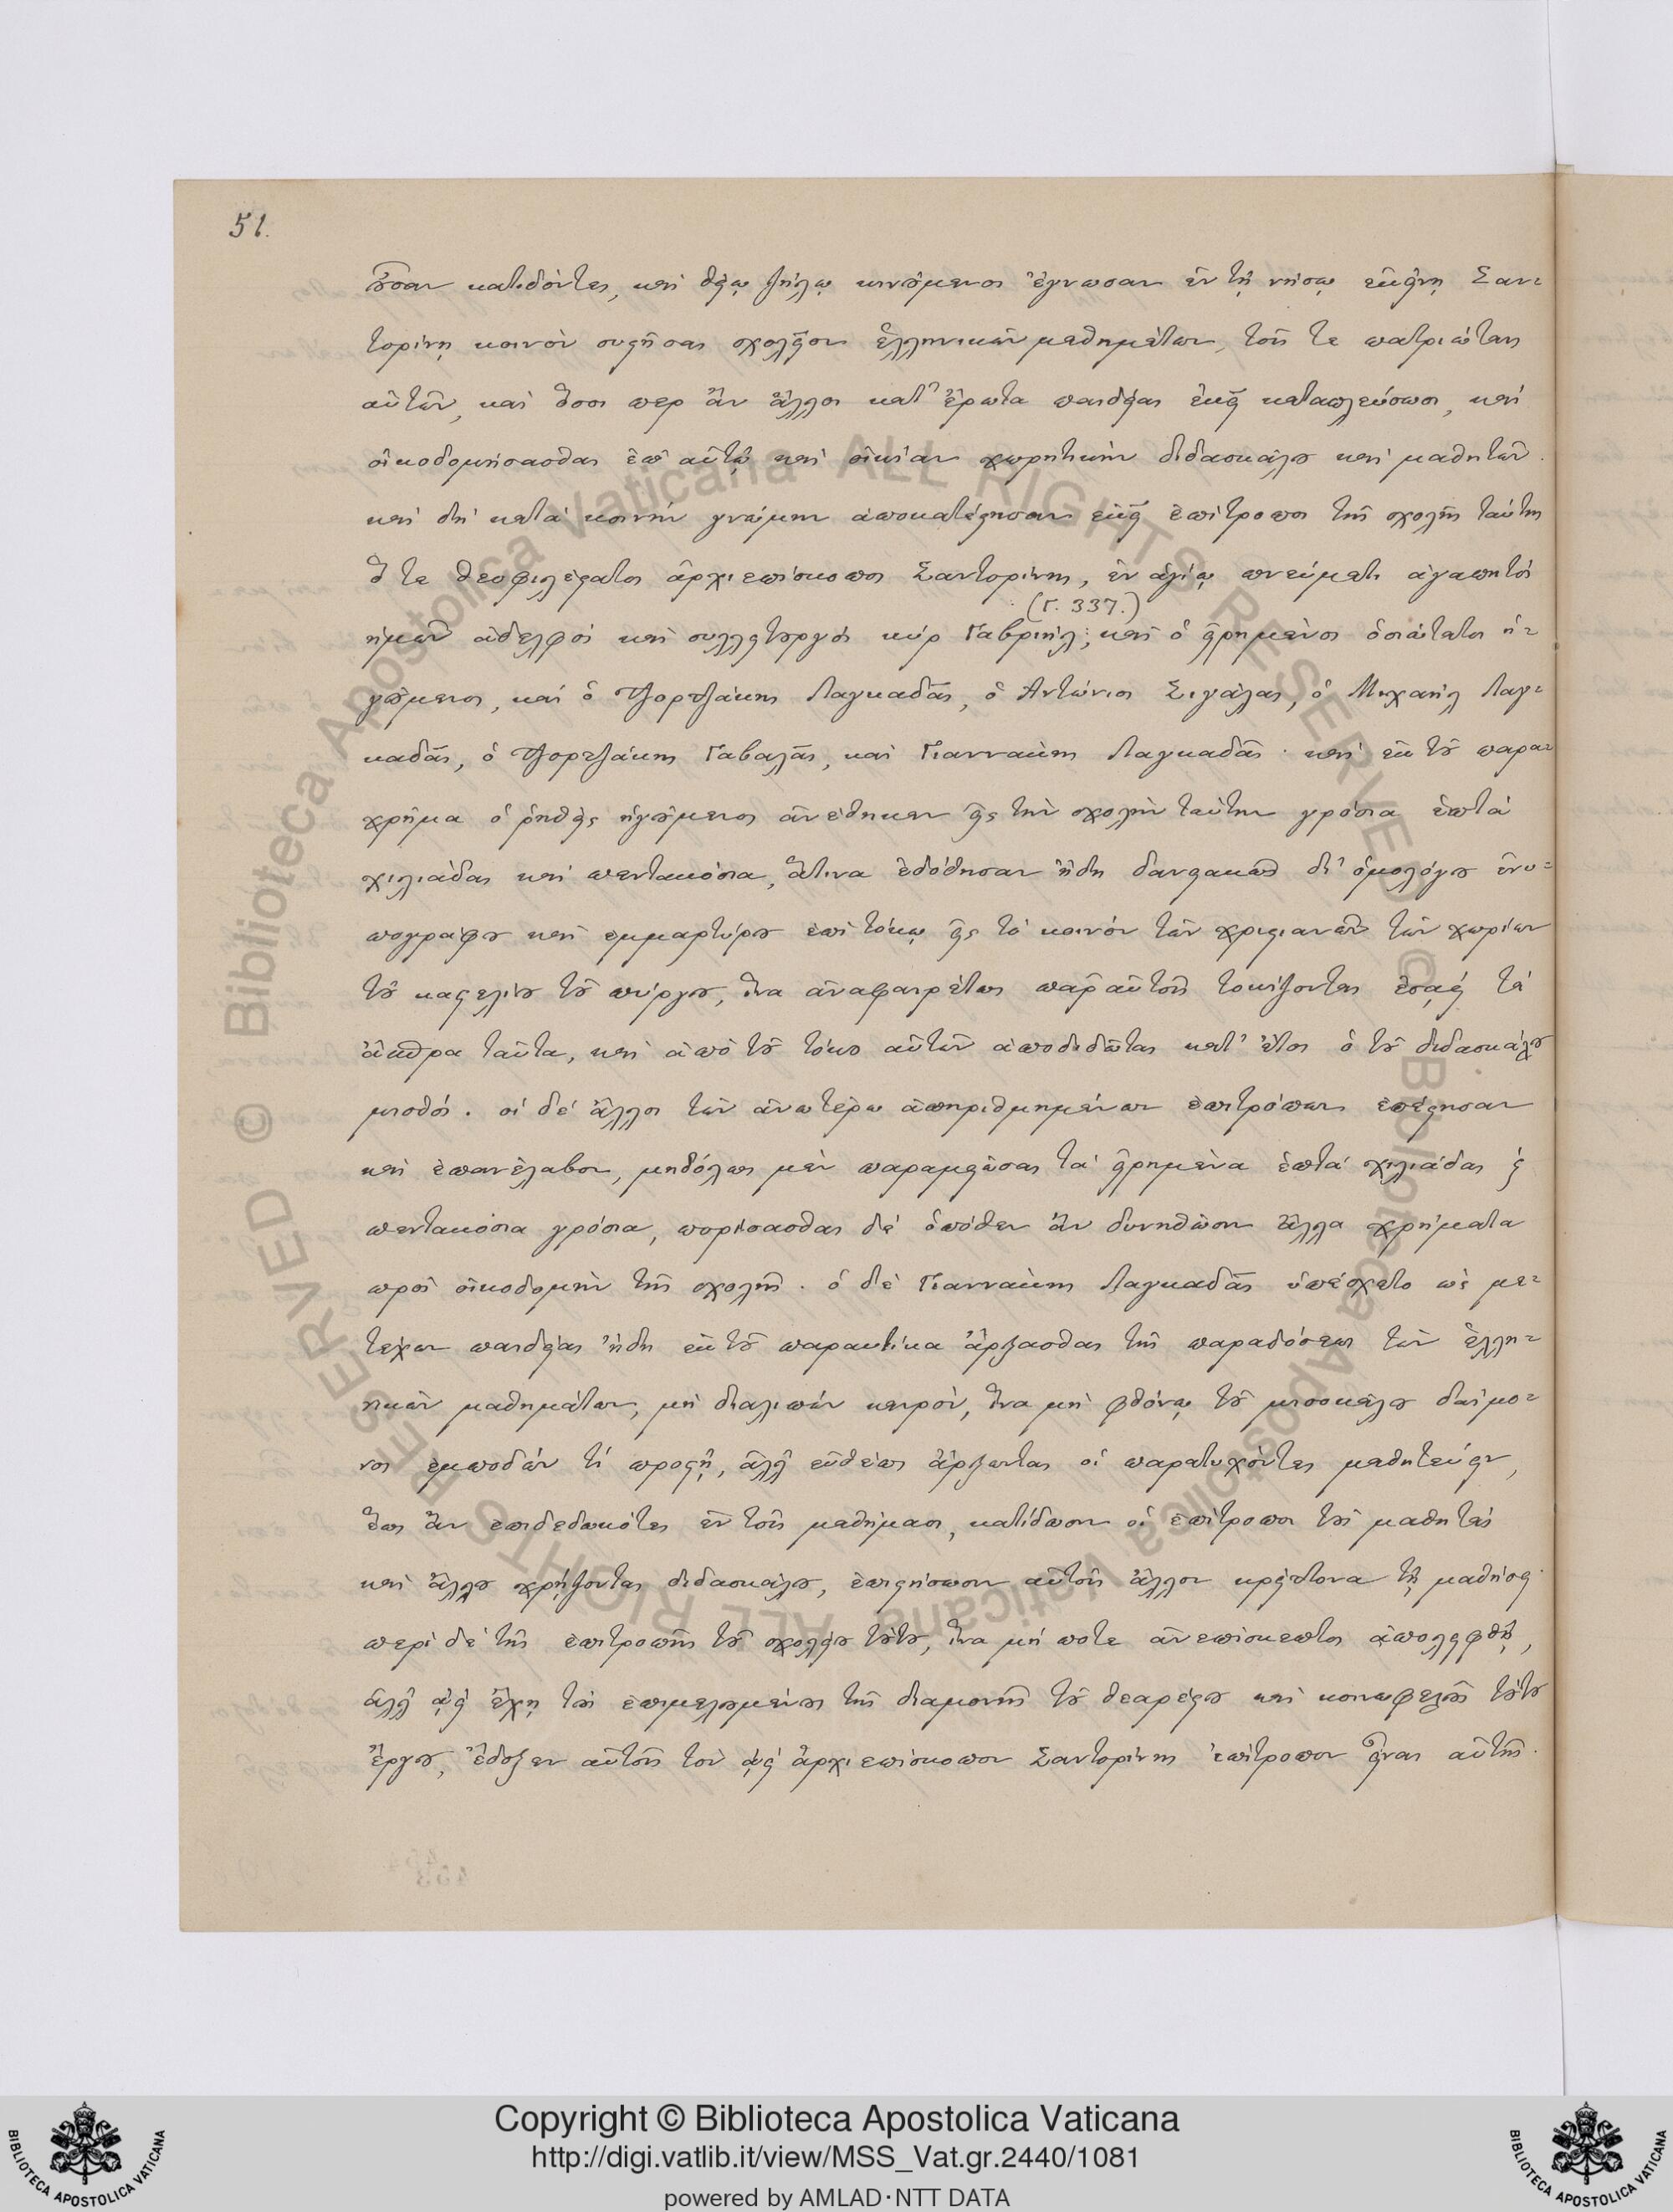 51.
οὖσαν κατιδόντες, καὶ θείῳ ζήλῳ κινούμενοι ἔγνωσαν ἐν τῇ νήσῳ ἐκείνῃ Σαν=
τορίνῃ κοινὸν συστῆσαι σχολεῖον ἑλληνικῶν μαθημάτων, τοῖς τε πατριώταις
αὐτῶν, καὶ ὅσοι περ ἂν ἄλλοι κατ' ἔρωτα παιδείας ἐκεῖ καταπλεύσωσι, καὶ
οἰκοδομήσασθαι ἐπ' αὐτῷ καὶ οἰκίαν χωρητικὴν διδασκάλου καὶ μαθητῶν.
καὶ δὴ κατὰ κοινὴν γνώμην ἀποκατέστησαν ἐκεῖ ἐπίτροποι τῆς σχολῆς ταύτης
ὅ τε θεοφιλέστατος ἀρχιεπίσκοπος Σαντορίνης, ἐν ἁγίῳ πνεύματι ἀγαπητὸς
(Γ. 337.)
ἡμῶν ἀδελφὸς καὶ συλλειτουργὸς κὺρ Γαβριήλ; καὶ ὁ εἰρημένος ὁσιώτατος ἡ=
γούμενος, καὶ ὁ Τζορτζάκης Λαγκαδᾶς, ὁ Ἀντώνιος Σιγάλας, ὁ Μιχαὴλ Λαγ=
καδᾶς, ὁ Τζορτζάκης Γαβαλᾶς, καὶ Γιαννακὴς Λαγκαδᾶς· καὶ ἐκ τοῦ παρα=
χρῆμα ὁ ῥηθεὶς ἡγούμενος ἀνέθηκεν εἰς τὴν σχολὴν ταύτην γρόσια ἑπτὰ
χιλιάδας καὶ πεντακόσια, ἅτινα ἐδόθησαν ἤδη δανειακῶς δι' ὁμολόγου ἐνυ=
πογράφου καὶ ἐμμαρτύρου ἐπὶ τόκῳ εἰς τὸ κοινὸν τῶν χριστιανῶν τῶν χωρίων
τοῦ καστελίου τοῦ πύργου, ἵνα ἀναφαιρέτως παρ' αὐτοῖς τοκίζονται ἐσαεὶ τὰ
ἄσπρα ταῦτα, καὶ ἀπὸ τοῦ τόκου αὐτῶν ἀποδιδῶται κατ' ἔτος ὁ τοῦ διδασκάλου
μισθός. οἱ δὲ ἄλλοι τῶν ἀνωτέρω ἀπηριθμημένων ἐπιτρόπων ἐπέστησαν
καὶ ἐπανέλαβον, μηδόλως μὲν παραμειῶσαι τὰ εἰρημένα ἑπτὰ χιλιάδας ϗ
πεντακόσια γρόσια, πορίσασθαι δὲ ὁπόθεν ἂν δυνηθῶσιν ἄλλα χρήματα
πρὸς οἰκοδομὴν τῆς σχολῆς. ὁ δὲ Γιαννακὴς Λαγκαδᾶς ὑπέσχετο ὡς με=
τέχων παιδείας ἤδη ἐκ τοῦ παραυτίκα ἄρξασθαι τῆς παραδόσεως τῶν ἑλλη=
νικῶν μαθημάτων, μὴ διαλιπὼν καιρόν, ἵνα μὴ φθόνῳ τοῦ μισοκάλου δαίμο=
νος ἐμποδών τι προστῇ, ἀλλ' εὐθέως ἄρξωνται οἱ παρατυχόντες μαθητεύειν,
ἕως ἂν ἐπιδεδωκότες ἐν τοῖς μαθήμασι, κατίδωσιν οἱ ἐπίτροποι τοὺς μαθητὰς
καὶ ἄλλου χρῄζοντας διδασκάλου, ἐπιστήσωσιν αὐτοῖς ἄλλον κρείττονα τῇ μαθήσει·
περὶ δὲ τῆς ἐπιτροπῆς τοῦ σχολείου τούτου, ἵνα μή ποτε ἀνεπίσκεπτος ἀπολειφθῇ,
ἀλλ' ἀεὶ ἔχῃ τοὺς ἐπιμελουμένους τῆς διαμονῆς τοῦ θεαρέστου καὶ κοινωφελοῦς τούτου
ἔργου, ἔδοξεν αὐτοῖς τὸν ἀεὶ ἀρχιεπίσκοπον Σαντορίνης ἐπίτροπον εἶναι αὐτῆς.
© Biblioteca Apostolica Vaticana ALL RIGHTS RESERVED
© Biblioteca Apostolica Vaticana ALL RIGHTS RESERVED
Copyright © Biblioteca Apostolica Vaticana
http://digi.vatlib.it/view/MSS_Vat.gr.2440/1081
powered by AMLAD·NTT DATA
BIBLIOTECA APOSTOLICA VATICANA
BIBLIOTECA APOSTOLICA VATICANA